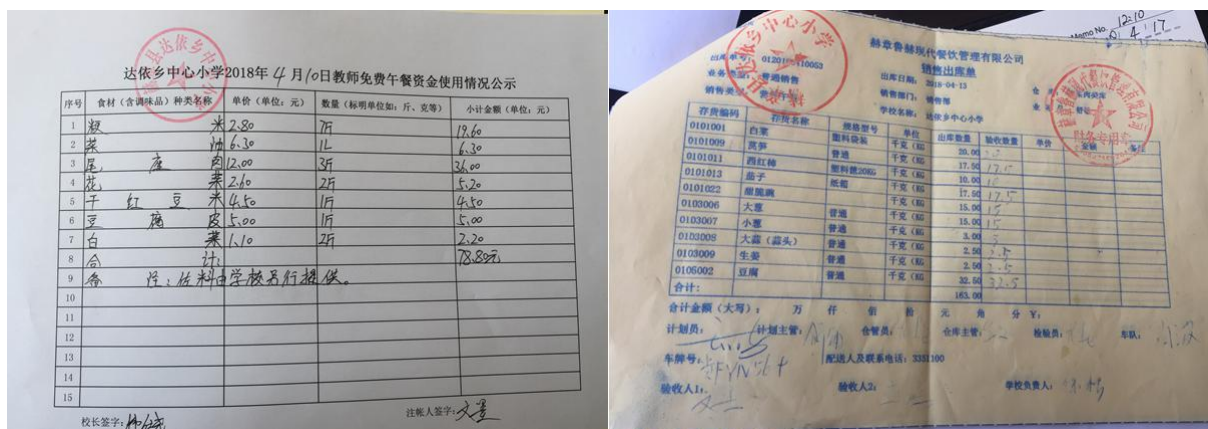 达依乡中心小学2018年4月10日教师免费午餐资金使用情况公示
序号 食材（含调味品）种类名称 单价（单位：元） 数量（标明单位如：斤、克等） 小计金额（单位：元）
1 粳米 2.80 7斤 19.60
2 菜油 6.30 1L 6.30
3 尾座肉 12.00 3斤 36.00
4 花菜 2.60 2斤 5.20
5 干红豆米 4.50 1斤 4.50
6 豆腐皮 5.00 1斤 5.00
7 白菜 1.10 2斤 2.20
8 合计: 78.80元
9 备注：佐料由学校另行提供。
10
11
12
13
14
15
校长签字： 注帐人签字：文墨
Memo No. 12:10
4 17
赫章鲁赫现代餐饮管理有限公司
销售出库单
出库单号 出库日期：2018-04-13
业务类型：普通销售 销售部门：销售部
销售类型 学校名称：达依乡中心小学
达依乡中心小学
财务专用章
存货编码 存货名称 规格型号 单位 出库数量 验收数量 单价 金额 备注
0101001 白菜 塑料袋装 千克（KG 20.00
0101009 莴笋 普通 千克（KG 17.50 17.5
0101011 西红柿 塑料筐20KG 千克（KG 10.00
0101013 茄子 纸箱 千克（KG 17.50 17.5
0101022 甜脆豌 千克（KG 15.00 15
0103006 大葱 普通 千克（KG 15.00 15
0103007 小葱 普通 千克（KG 3.00
0103008 大蒜（蒜头） 普通 千克（KG 2.50 2.5
0103009 生姜 普通 千克（KG 2.50 2.5
0105002 豆腐 普通 千克（KG 32.50 32.5
合计： 163.00
合计金额（大写）： 万 仟 佰 拾 元 角 分 ￥：
计划员： 计划主管： 仓管员： 仓库主管： 检验员： 车队：
车牌号： 配送人及联系电话：3331100
验收人1： 验收人2： 学校负责人：